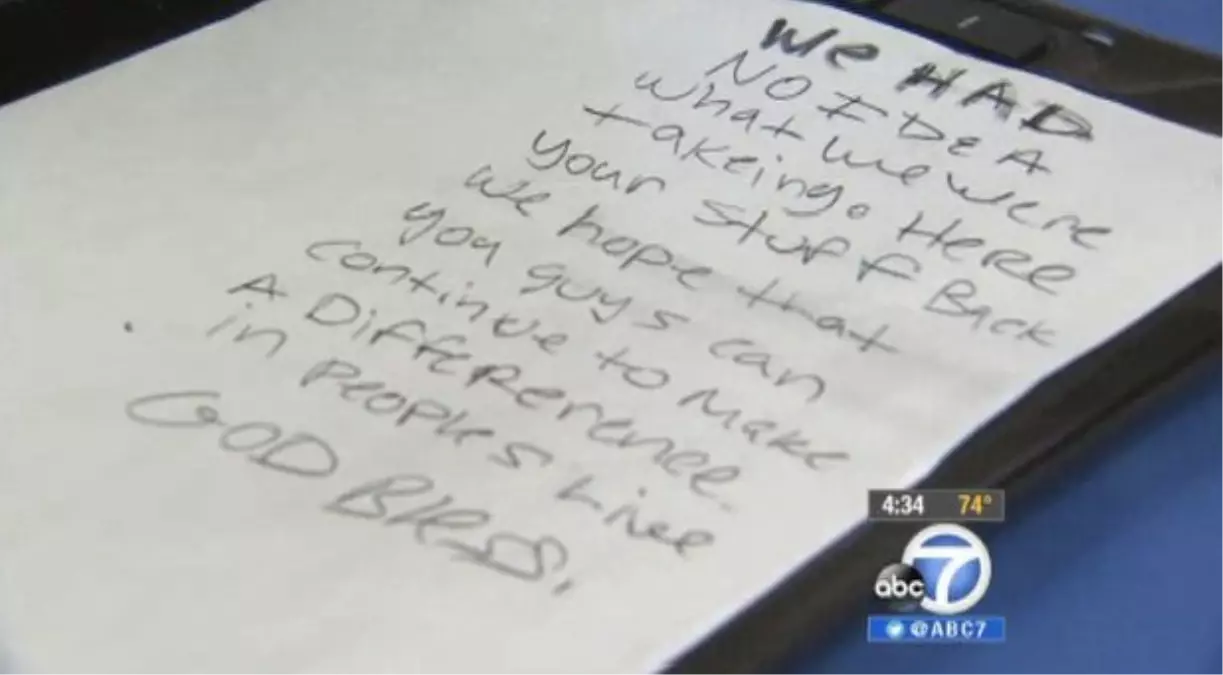 We HAD
NO IDEA
what we were
takeing. Here
your stuff Back
we hope that
you guys can
continue to Make
A Difference
in peoples Live
GOD BLESS.
4:34 74°
abc 7
@ABC7